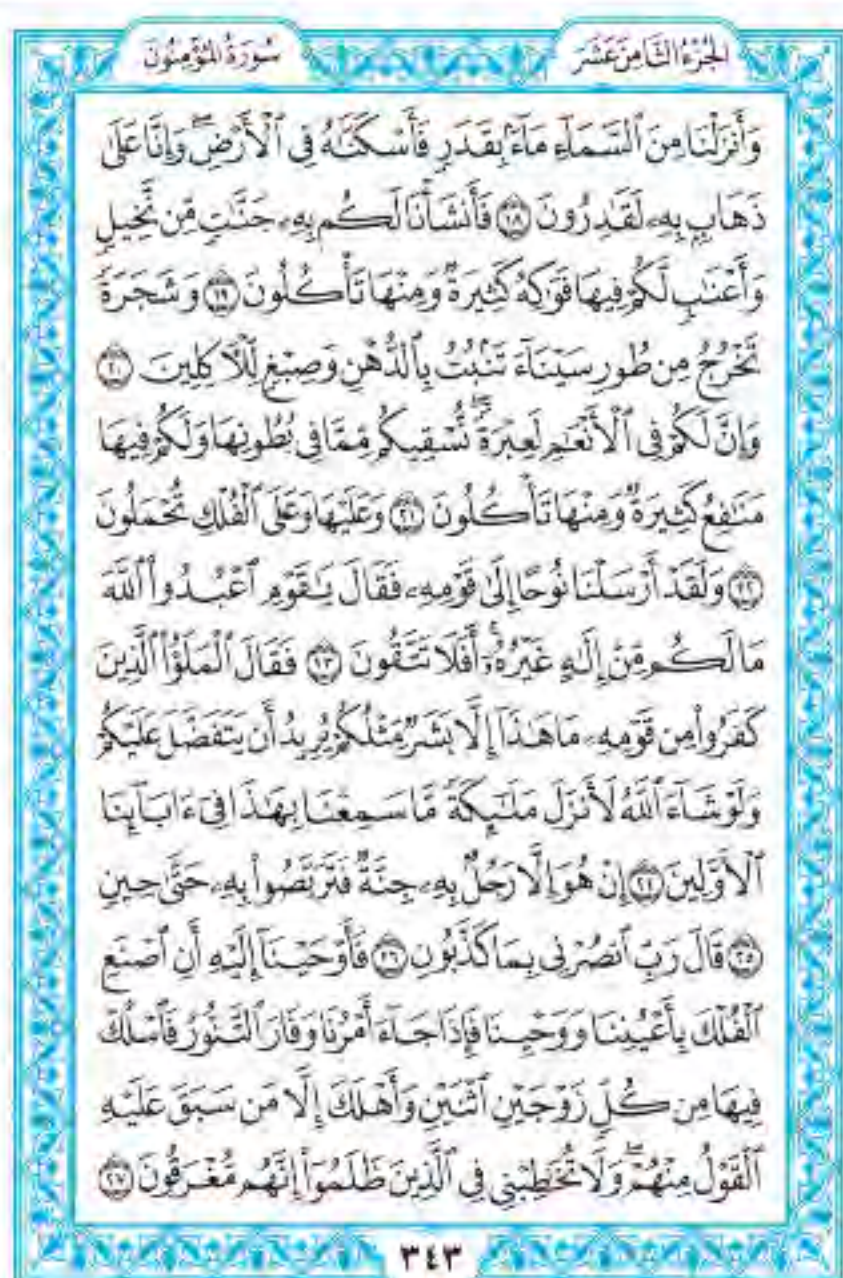 الجُزْءُ الثَّامِنَ عَشَرَ
سُورَةُ المُؤْمِنُونَ
وَأَنزَلْنَا مِنَ ٱلسَّمَآءِ مَآءَۢ بِقَدَرٖ فَأَسۡكَنَّٰهُ فِي ٱلۡأَرۡضِۖ وَإِنَّا عَلَىٰ
ذَهَابِۭ بِهِۦ لَقَٰدِرُونَ ١٨ فَأَنشَأۡنَا لَكُم بِهِۦ جَنَّٰتٖ مِّن نَّخِيلٖ
وَأَعۡنَٰبٖ لَّكُمۡ فِيهَا فَوَٰكِهُ كَثِيرَةٞ وَمِنۡهَا تَأۡكُلُونَ ١٩ وَشَجَرَةٗ
تَخۡرُجُ مِن طُورِ سَيۡنَآءَ تَنۢبُتُ بِٱلدُّهۡنِ وَصِبۡغٖ لِّلۡأٓكِلِينَ ٢٠
وَإِنَّ لَكُمۡ فِي ٱلۡأَنۡعَٰمِ لَعِبۡرَةٗۖ نُّسۡقِيكُم مِّمَّا فِي بُطُونِهَا وَلَكُمۡ فِيهَا
مَنَٰفِعُ كَثِيرَةٞ وَمِنۡهَا تَأۡكُلُونَ ٢١ وَعَلَيۡهَا وَعَلَى ٱلۡفُلۡكِ تُحۡمَلُونَ
٢٢ وَلَقَدۡ أَرۡسَلۡنَا نُوحًا إِلَىٰ قَوۡمِهِۦ فَقَالَ يَٰقَوۡمِ ٱعۡبُدُواْ ٱللَّهَ
مَا لَكُم مِّنۡ إِلَٰهٍ غَيۡرُهُۥٓۚ أَفَلَا تَتَّقُونَ ٢٣ فَقَالَ ٱلۡمَلَؤُاْ ٱلَّذِينَ
كَفَرُواْ مِن قَوۡمِهِۦ مَا هَٰذَآ إِلَّا بَشَرٞ مِّثۡلُكُمۡ يُرِيدُ أَن يَتَفَضَّلَ عَلَيۡكُمۡ
وَلَوۡ شَآءَ ٱللَّهُ لَأَنزَلَ مَلَٰٓئِكَةٗ مَّا سَمِعۡنَا بِهَٰذَا فِيٓ ءَابَآئِنَا
ٱلۡأَوَّلِينَ ٢٤ إِنۡ هُوَ إِلَّا رَجُلُۢ بِهِۦ جِنَّةٞ فَتَرَبَّصُواْ بِهِۦ حَتَّىٰ حِينٖ
٢٥ قَالَ رَبِّ ٱنصُرۡنِي بِمَا كَذَّبُونِ ٢٦ فَأَوۡحَيۡنَآ إِلَيۡهِ أَنِ ٱصۡنَعِ
ٱلۡفُلۡكَ بِأَعۡيُنِنَا وَوَحۡيِنَا فَإِذَا جَآءَ أَمۡرُنَا وَفَارَ ٱلتَّنُّورُ فَٱسۡلُكۡ
فِيهَا مِن كُلّٖ زَوۡجَيۡنِ ٱثۡنَيۡنِ وَأَهۡلَكَ إِلَّا مَن سَبَقَ عَلَيۡهِ
ٱلۡقَوۡلُ مِنۡهُمۡۖ وَلَا تُخَٰطِبۡنِي فِي ٱلَّذِينَ ظَلَمُوٓاْ إِنَّهُم مُّغۡرَقُونَ ٢٧
٣٤٣